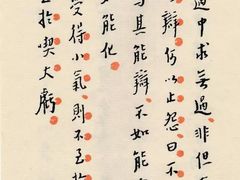 過中求無過非但
辯何以止怨曰不
與其能辯不如能
如能化
受得小氣則不至於
於喫大虧